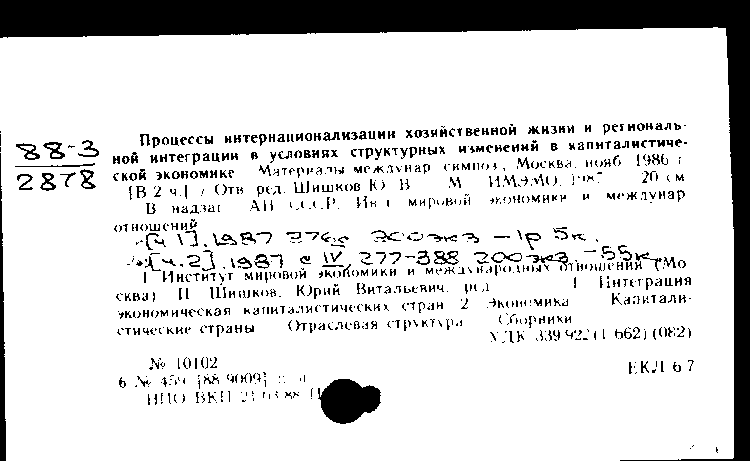 88-3
2878
Процессы интернационализации хозяйственной жизни и региональ-
ной интеграции в условиях структурных изменений в капиталистиче-
ской экономике Материалы междунар симпоз, Москва, нояб 1986 г
[В 2 ч.] / Отв ред. Шишков Ю В М ИМЭМО, 1987 20 см
В надзаг АН СССР, Ин-т мировой экономики и междунар
отношений
[ч 1], 1987 276с 200экз — 1р 5к.
[ч.2], 1987 с IV, 277-388 200экз, — 55к
I Институт мировой экономики и международных отношений (Мо
сква) II Шишков, Юрий Витальевич, ред 1 Интеграция
экономическая капиталистических стран 2 Экономика Капитали-
стические страны Отраслевая структура Сборники
УДК 339 922 (1-662) (082)
№ 10102
6 № 459 [88-9009]
НПО ВКП 21 03 88
ЕКЛ 6 7